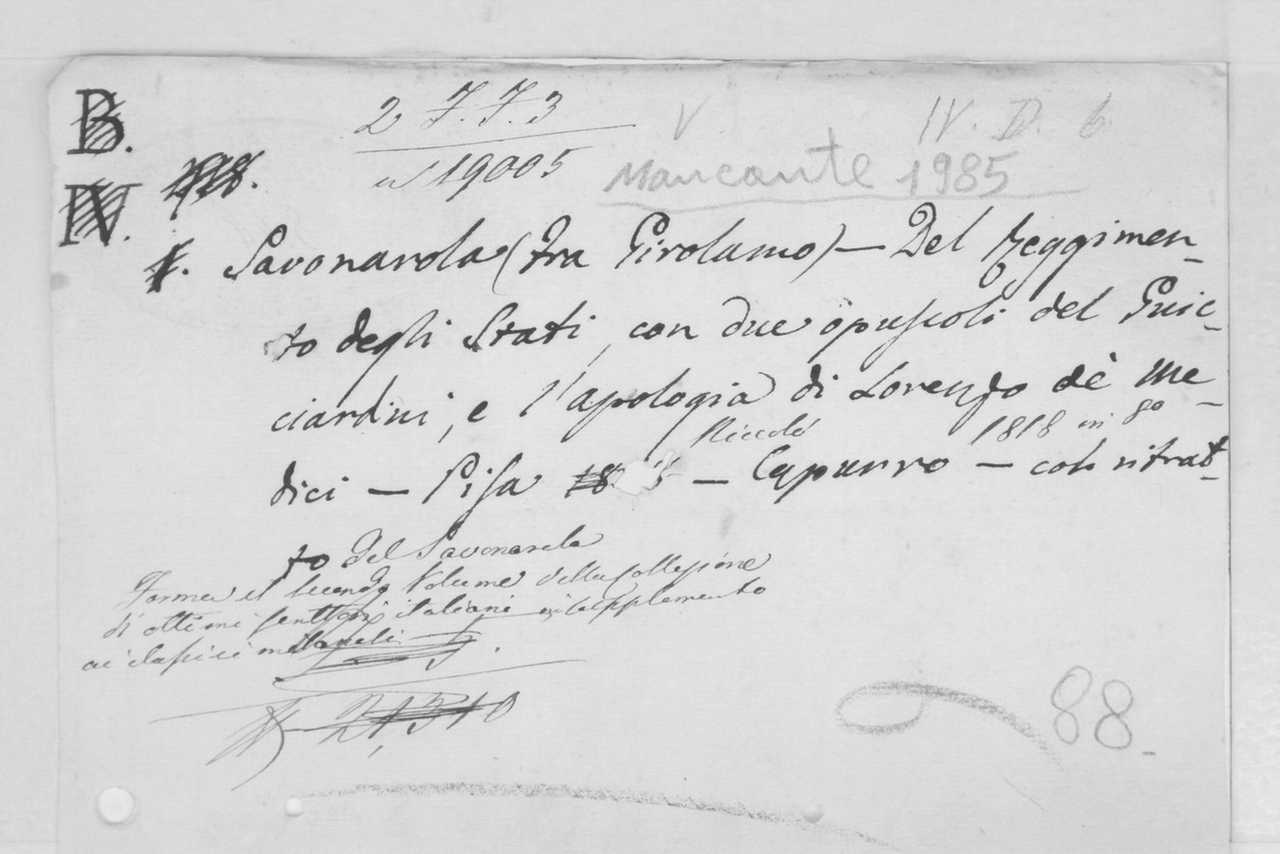 B.
IV.
2 7.7.3
n 19005
V.
IV. D. 6.
Mancante 1985
Savonarola (Fra Girolamo) — Del Reggimen-
to degli Stati, con due opuscoli del Guic-
ciardini, e l'apologia di Lorenzo dè Me-
Niccolò 1818 in 8º
dici — Pisa — Capurro — col ritrat-
to del Savonarola
Forma il secondo Volume della Collezione
di ottimi scrittori italiani in supplemento
ai classici milanesi.
88.